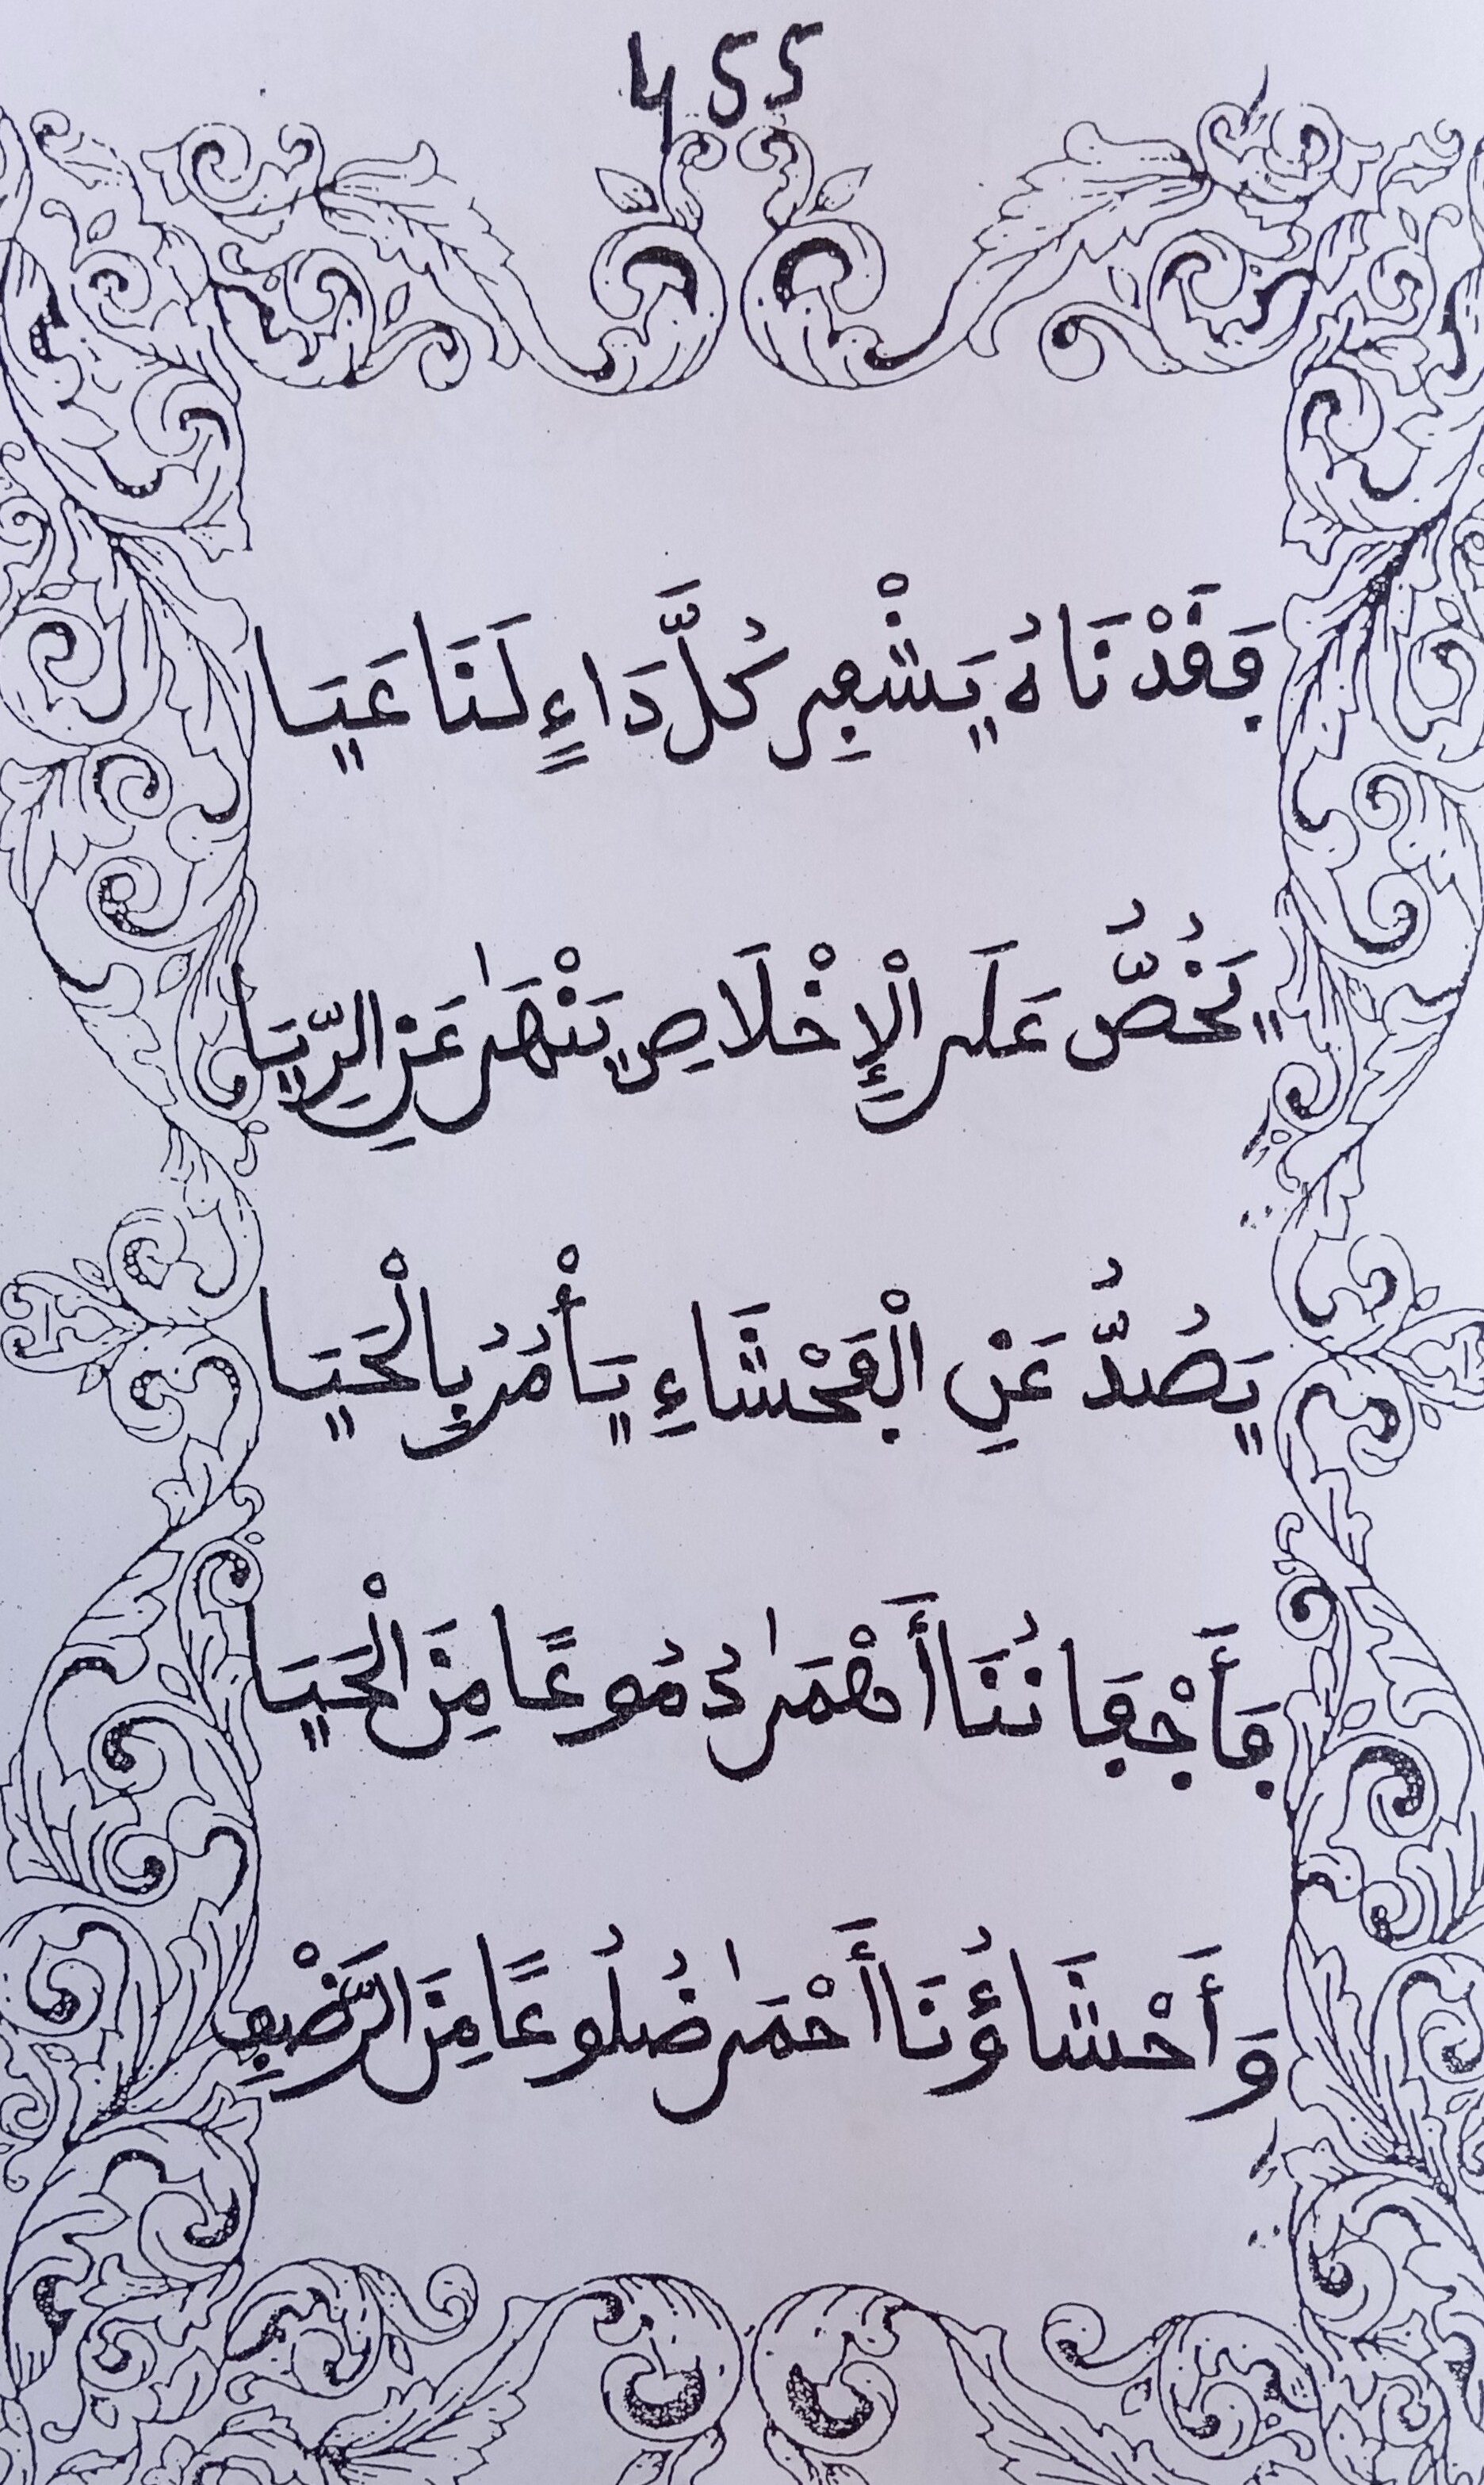 455
فَقَدْنَاهُ يَشْفِي كُلَّ دَاءٍ لَنَا عَيَا
يَحُضُّ عَلَى الْإِخْلَاصِ يَنْهَىٰ عَنِ الرِّيَا
يَصُدُّ عَنِ الْفَحْشَاءِ يَأْمُرُ بِالْحَيَا
فَأَجْفَانُنَا أَهْمَىٰ دُمُوعًا مِنَ الْحَيَا
وَأَحْشَاؤُنَا أَحْمَىٰ ضُلُوعًا مِنَ الرَّضْفِ